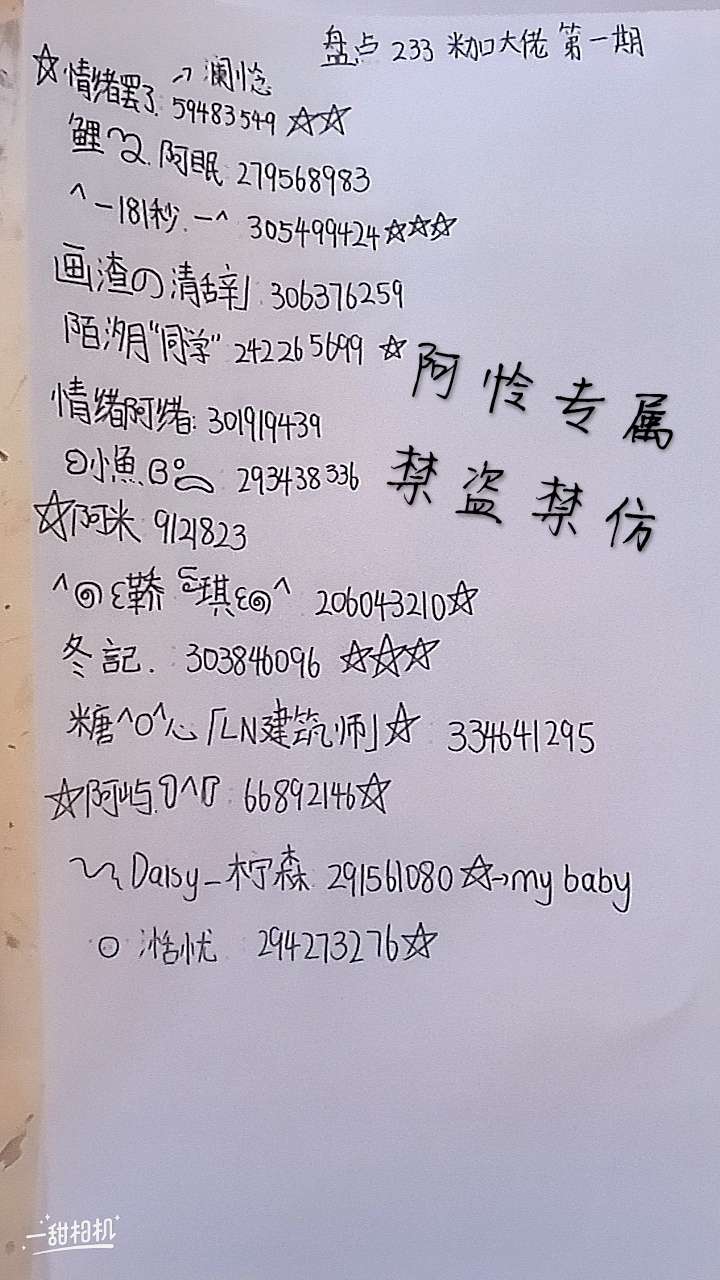 盘点 233 米加大佬 第一期
☆情绪罢了. 59483549 ☆☆
→澜惗
鲤 阿眠: 279568983
^一181秒.一^ 305499424☆☆☆
画渣の清辞」: 306376259
陌汐月"同学" 242265699 ☆
情绪阿绪: 301919439
小魚 293438336
☆阿米 9121823
阿怜专属
禁盗禁仿
^๑ 鞒 琪 ๑^ 206043210☆
冬記. : 303846096 ☆☆☆
糖^O^心「LN建筑师」☆ 334641295
☆阿屿. : 66892146☆
Daisy_柠森 291561080☆→my baby
○ 湉忧 294273276☆
一甜相机